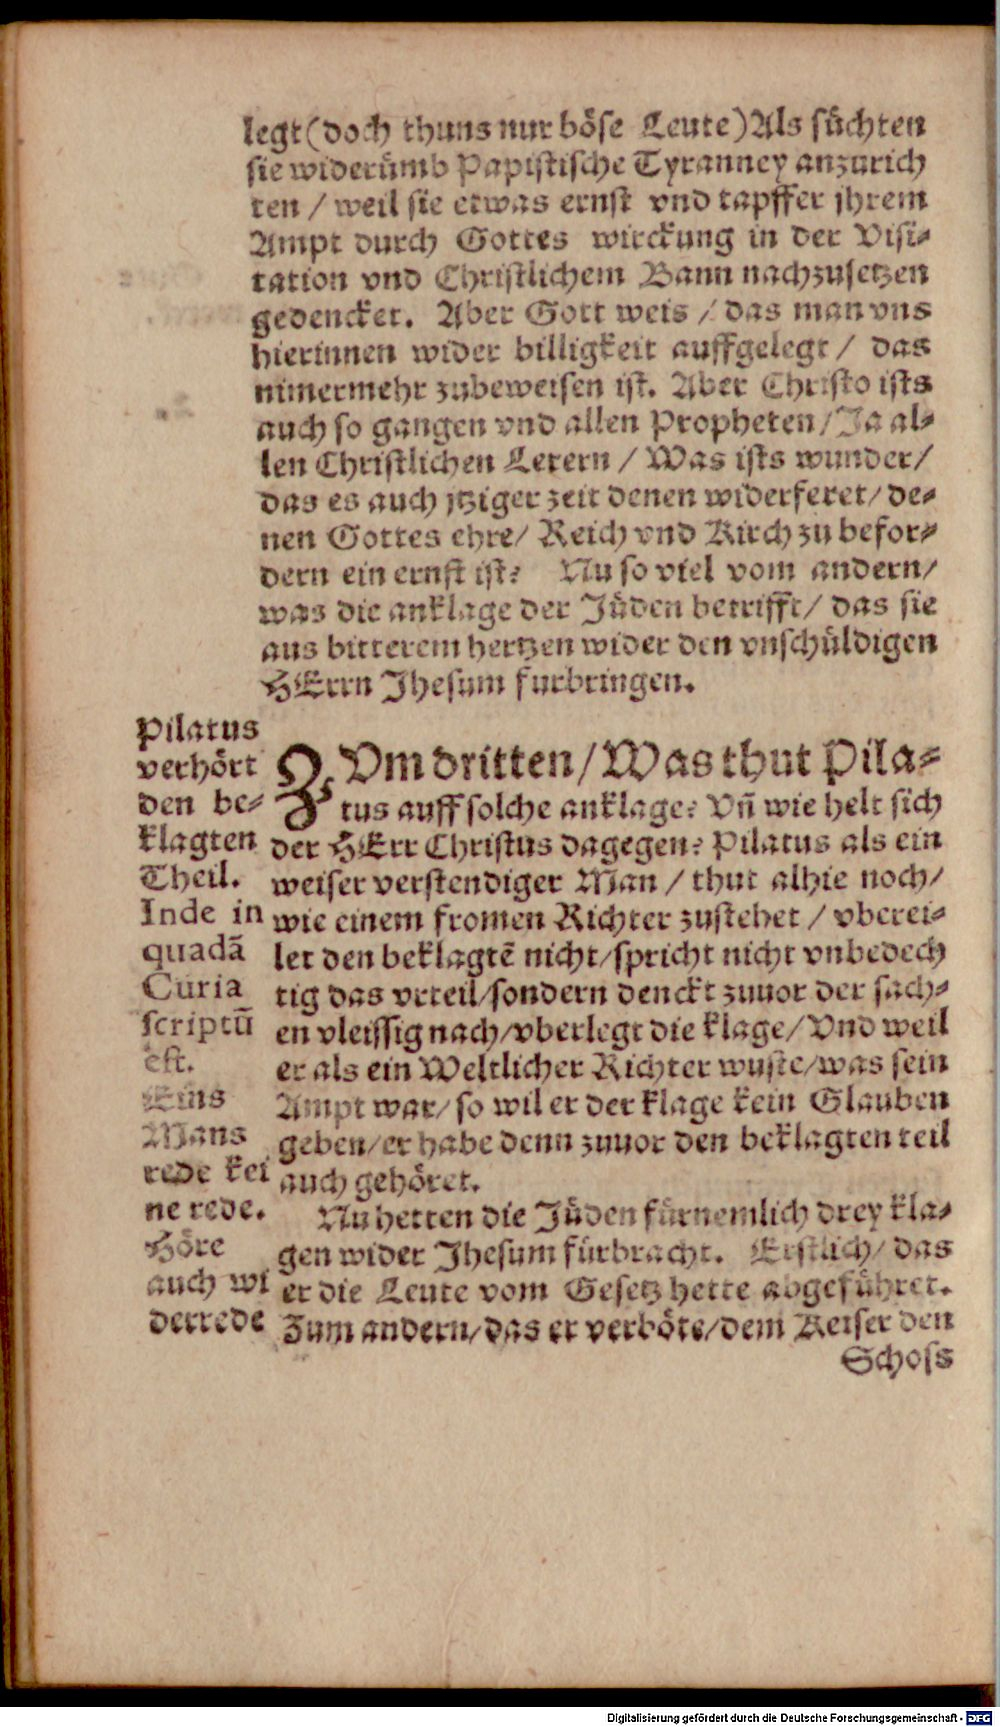 legt (doch thuns nur böse Leute) Als süchten
sie widerümb Papistische Tyranney anzurich
ten / weil sie etwas ernst vnd tapffer jhrem
Ampt durch Gottes wirckung in der Visi-
tation vnd Christlichem Bann nachzusetzen
gedencket. Aber Gott weis / das man vns
hierinnen wider billigkeit auffgelegt / das
nimermehr zubeweisen ist. Aber Christo ists
auch so gangen vnd allen Propheten / Ja al-
len Christlichen Lerern / Was ists wunder /
das es auch jtziger zeit denen widerferet / de-
nen Gottes ehre / Reich vnd Kirch zu befor-
dern ein ernst ist? Nu so viel vom andern /
was die anklage der Jüden betrifft / das sie
aus bitterem hertzen wider den vnschüldigen
HErrn Jhesum furbringen.
Pilatus
verhört
den be-
klagten
Theil.
Inde in
quadã
Curia
scriptũ
est.
Eins
Mans
rede kei
ne rede.
Höre
auch wi
derrede
ZVm dritten / Was thut Pila-
tus auff solche anklage? Vñ wie helt sich
der HErr Christus dagegen? Pilatus als ein
weiser verstendiger Man / thut alhie noch /
wie einem fromen Richter zustehet / vberei-
let den beklagtẽ nicht / spricht nicht vnbedech
tig das vrteil / sondern denckt zuuor der sach-
en vleissig nach / vberlegt die klage / Vnd weil
er als ein Weltlicher Richter wuste / was sein
Ampt war / so wil er der klage kein Glauben
geben / er habe denn zuuor den beklagten teil
auch gehöret.
Nu hetten die Jüden fürnemlich drey kla-
gen wider Jhesum fürbracht. Erstlich / das
er die Leute vom Gesetz hette abgeführet.
Zum andern / das er verböte / dem Keiser den
Schoss
Digitalisierung gefördert durch die Deutsche Forschungsgemeinschaft - DFG